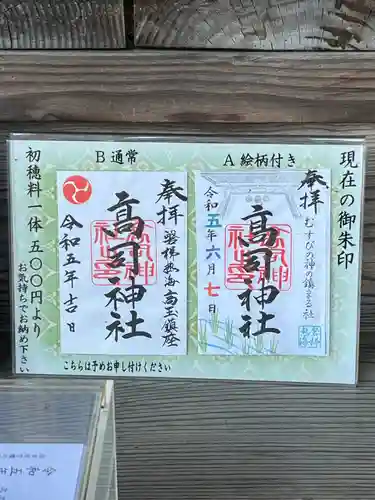 現在の御朱印
A 絵柄付き
奉拝
むすびの神の鎮まる社
高司神社
令和五年六月七日
B 通常
奉拝
磐梯熱海高玉鎮座
高司神社
令和五年吉日
初穂料一体五〇〇円より
お気持ちでお納め下さい
こちらは予めお申し付けください